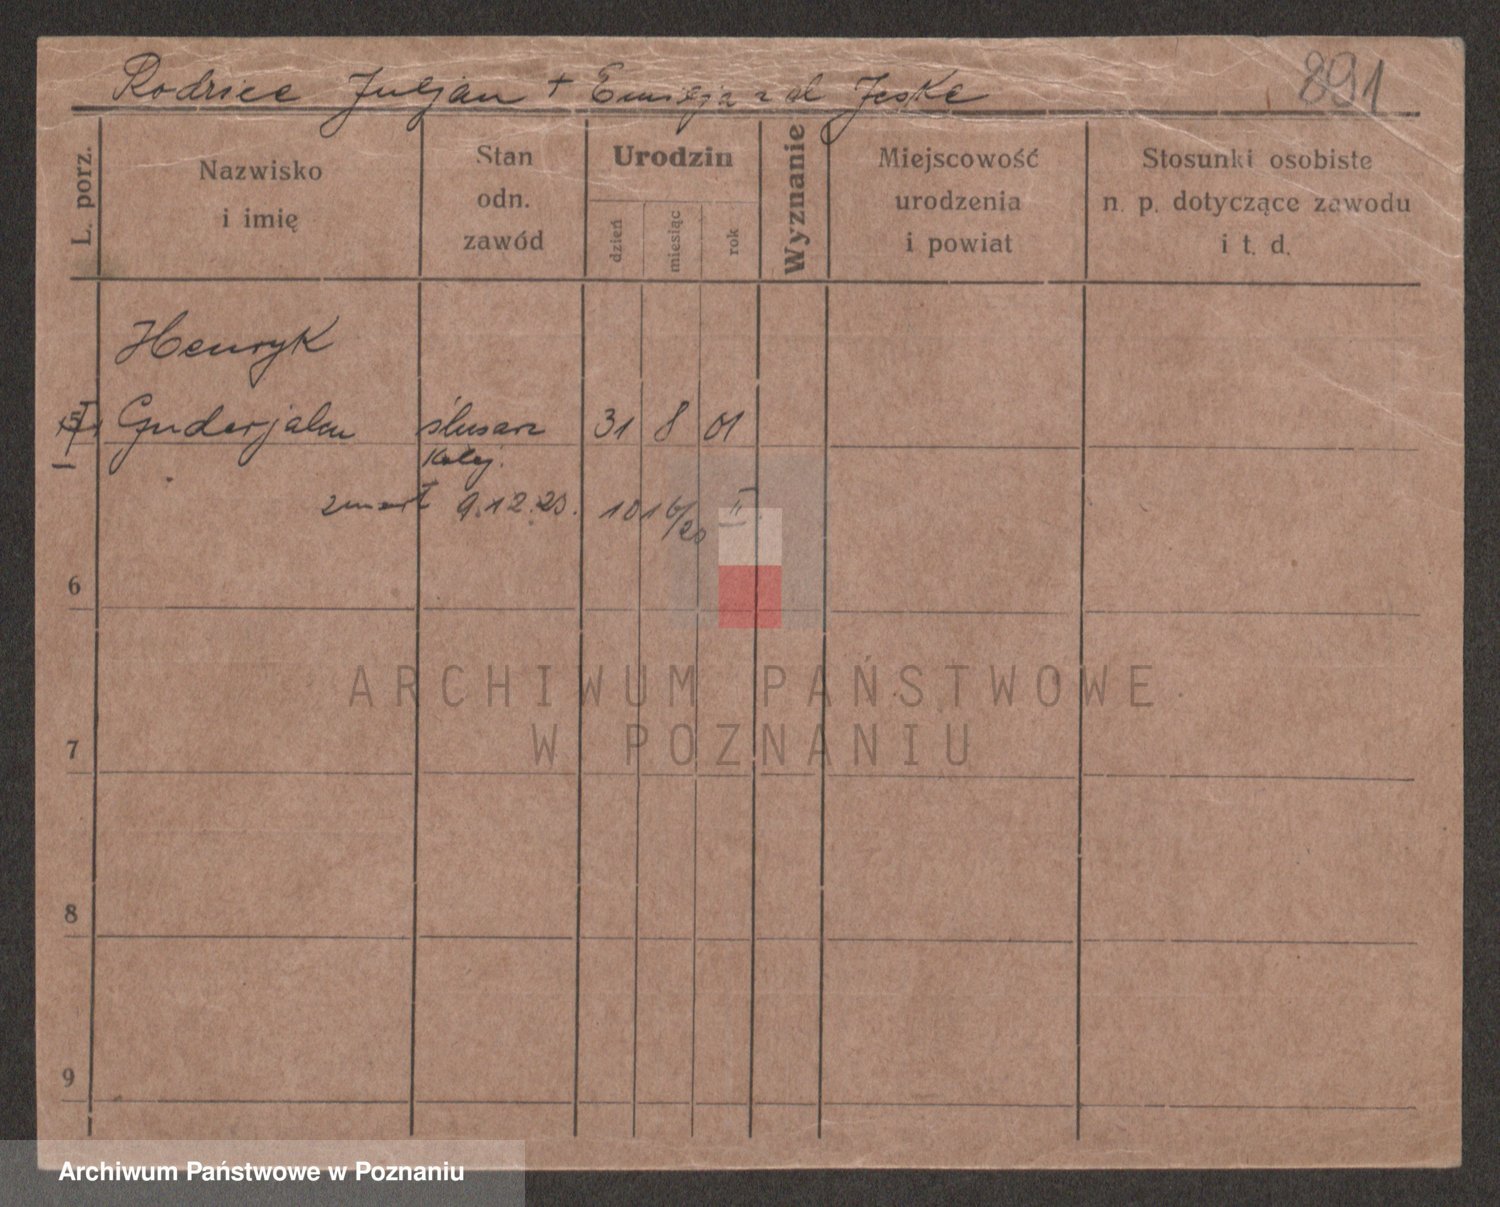 Rodzice Juljan + Emilja z d Jeske
891
L. porz.
Nazwisko
i imię
Stan
odn.
zawód
Urodzin
dzień
miesiąc
rok
Wyznanie
Miejscowość
urodzenia
i powiat
Stosunki osobiste
n. p. dotyczące zawodu
i t. d.
Henryk
Guderjahn ślusarz 31 8 01
kolej.
zmarł 9.12.20. II
6
7
8
9
ARCHIWUM PAŃSTWOWE
W POZNANIU
Archiwum Państwowe w Poznaniu